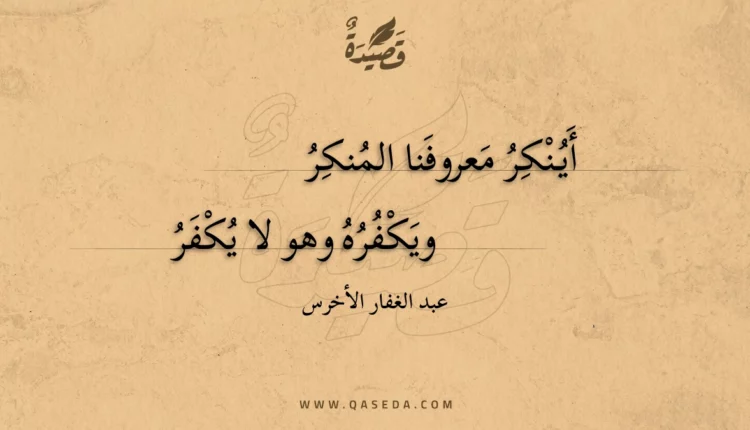 قَصِيْدَةٌ
أَيُنْكِرُ مَعروفَنا المُنكِرُ
ويَكْفُرُهُ وهو لا يُكْفَرُ
عبد الغفار الأخرس
WWW.QASEDA.COM